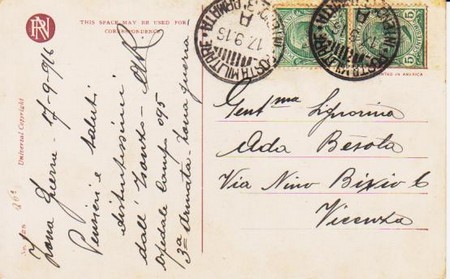 THIS SPACE MAY BE USED FOR
CORRESPONDENCE
Universal Copyright
Zona Guerra - 17-9-916
Pensieri e saluti
distintissimi
dall' Isonzo -
Ospedale Campo 095
3ª Armata - Zona guerra
POSTA MILITARE
17.9.16
A
POSTA MILITARE
A
5
5
PRINTED IN AMERICA
Gentma Signorina
Ada Besola
Via Nino Bixio 6
Vicenza